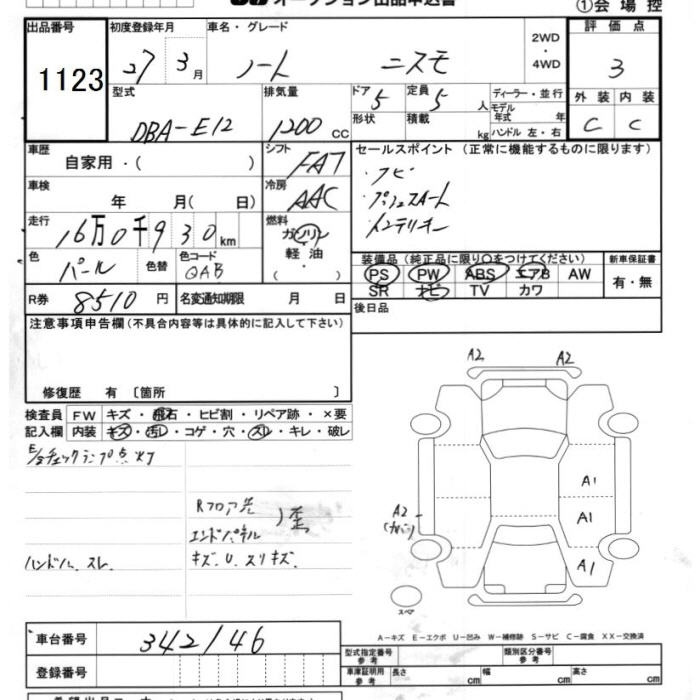 オークション出品申込書
①会場控
出品番号 1123
初度登録年月 27 3月
車名・グレード ノート ニスモ
2WD・4WD
評価点 3
型式 DBA-E12
排気量 1200 CC
ドア 5
形状
定員 5人
積載 kg
ディーラー・並行
モデル年式 年
ハンドル 左・右
外装 C
内装 C
車歴 自家用・( )
シフト FAT
セールスポイント (正常に機能するものに限ります)
・ナビ
・プッシュスタート
・インテリキー
車検 年 月( 日)
冷房 AAC
走行 16万0千930km
燃料 ガソリン 軽油・( )
色 パール
色替
色コード QAB
装備品 (純正品に限り○をつけてください)
PS PW ABS エアB AW
SR ナビ TV カワ
新車保証書 有・無
R券 8510円
名変通知期限 月 日
後日品
注意事項申告欄 (不具合内容等は具体的に記入して下さい)
修復歴 有 〔箇所 〕
検査員記入欄
FW キズ・飛石・ヒビ割・リペア跡・×要
内装 キズ・汚レ・コゲ・穴・スレ・キレ・破レ
E/gチェックランプ点灯
Rフロア先
エンドパネル
歪
ハンドル、スレ、
キズ、U、スリキズ、
A2 A2
A1
A1
A1
A2
(カバー)
スペア
A−キズ E−エクボ U−凹み W−補修跡 S−サビ C−腐食 XX−交換済
車台番号 342146
登録番号
型式指定番号 参考
類別区分番号 参考
車庫証明用 参考
長さ cm 幅 cm 高さ cm